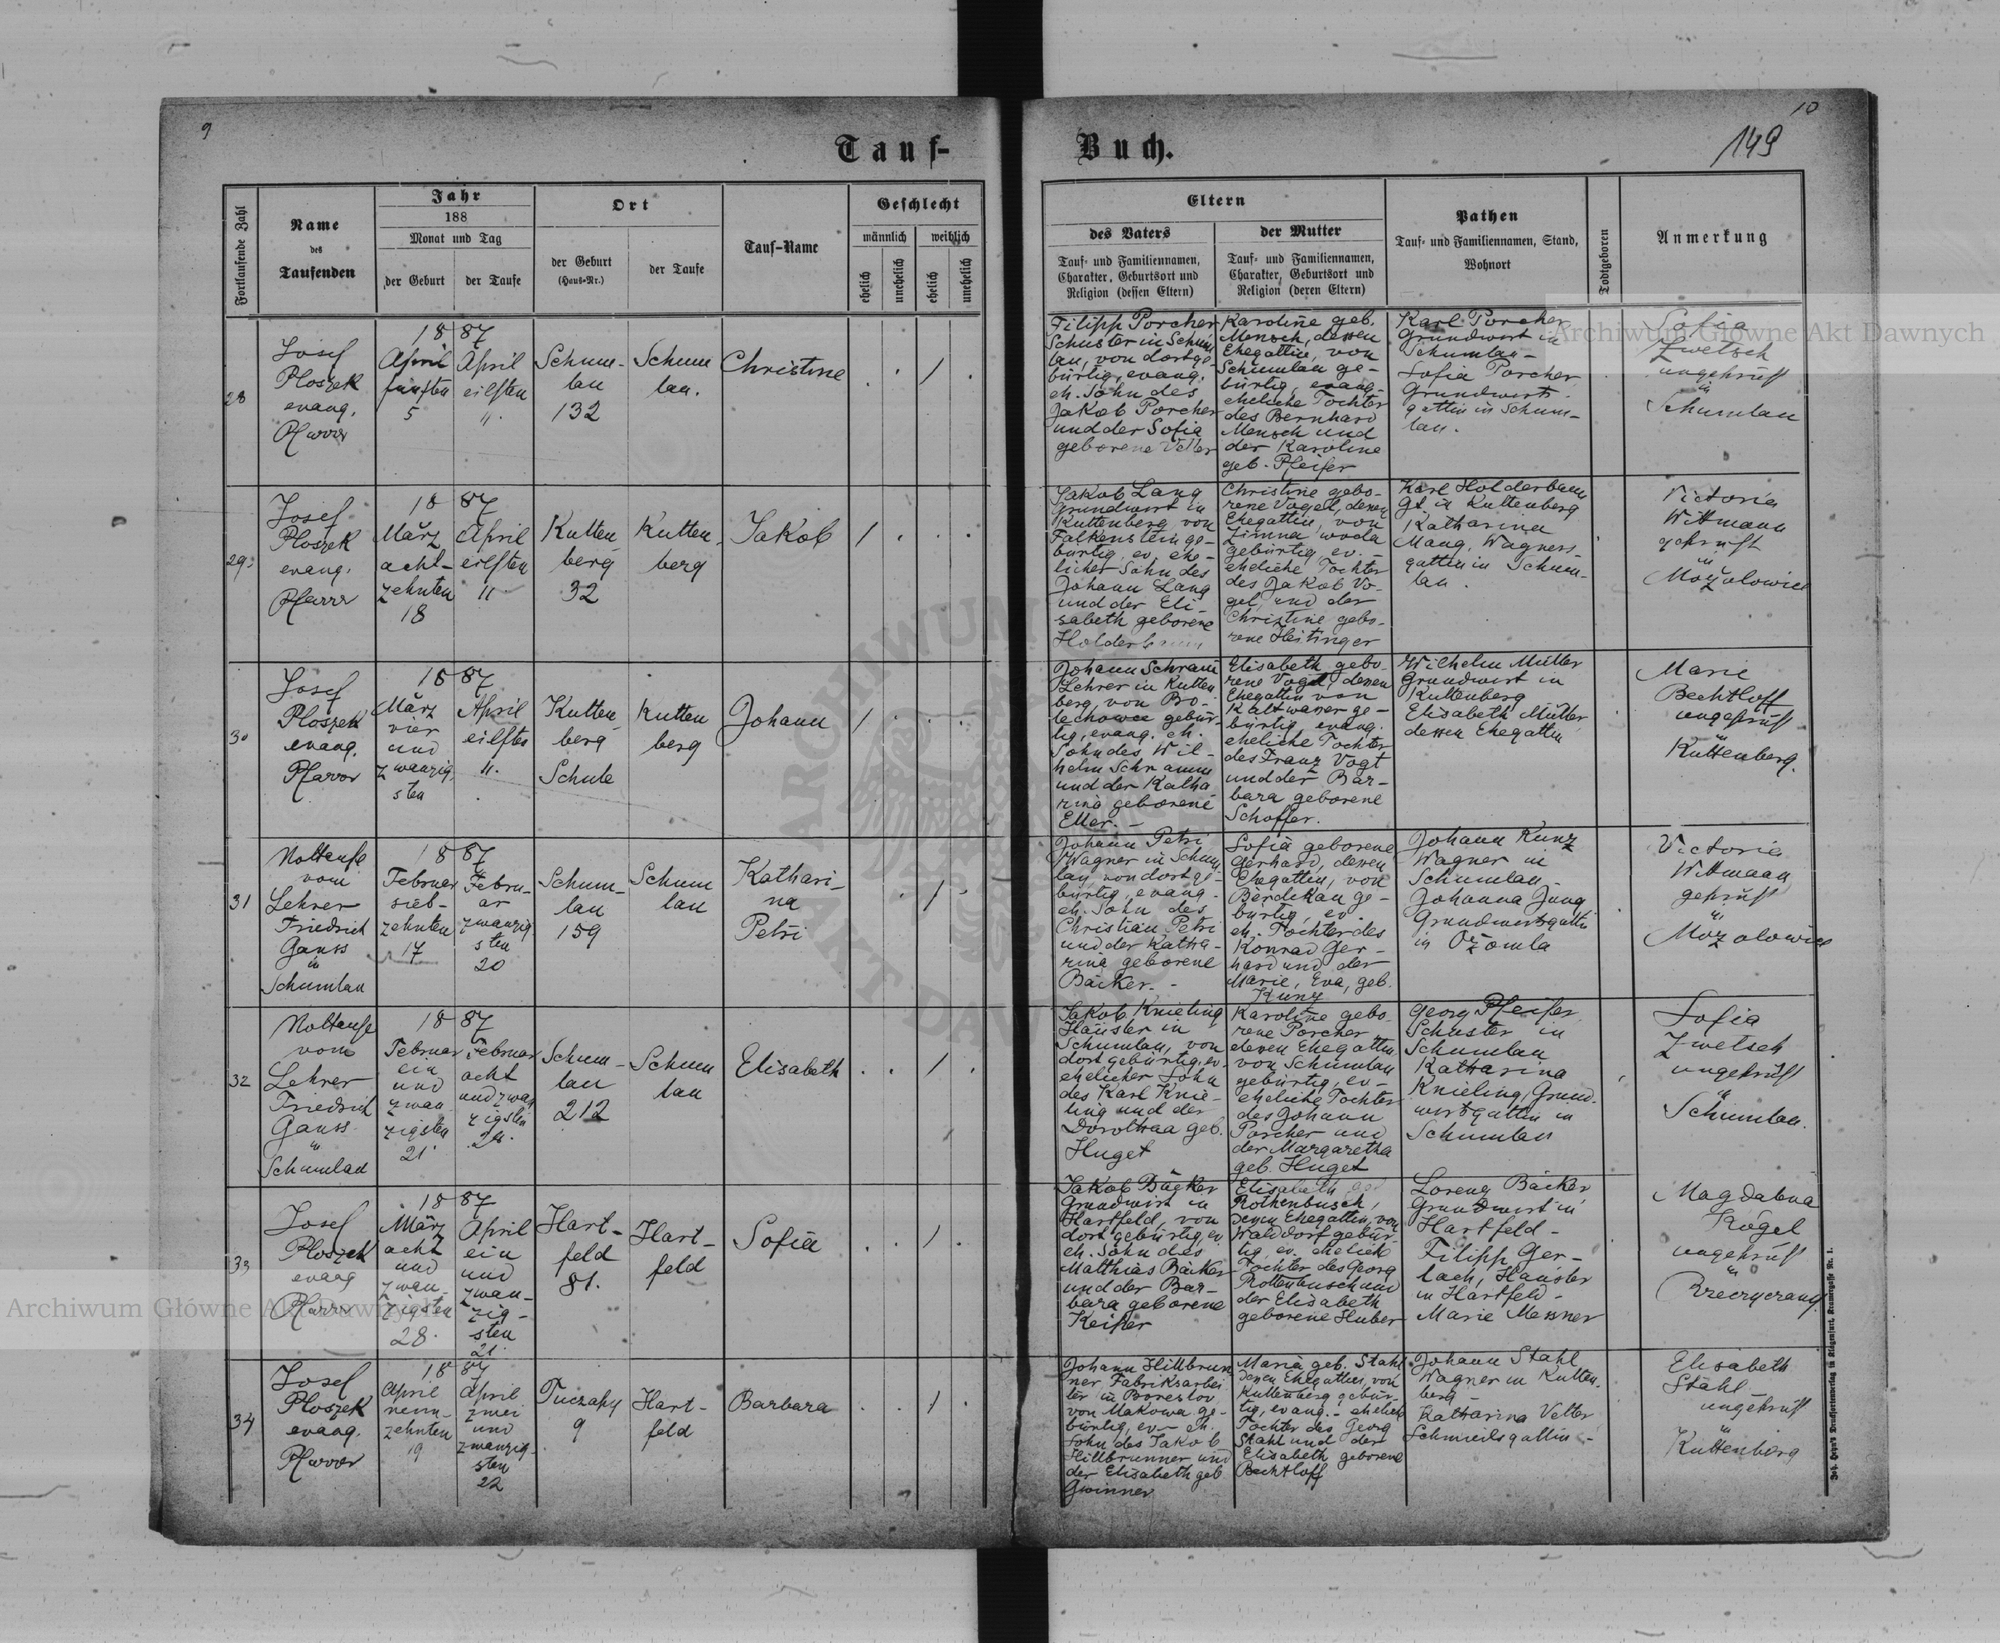 9
10
149
Tauf-Buch.
Fortlaufende Zahl
Name
des
Taufenden
Jahr
188
Monat und Tag
der Geburt
der Taufe
Ort
der Geburt
(Haus-Nr.)
der Taufe
Tauf-Name
Geschlecht
männlich
weiblich
ehelich
unehelich
ehelich
unehelich
Eltern
des Vaters
Tauf- und Familiennamen,
Charakter, Geburtsort und
Religion (dessen Eltern)
der Mutter
Tauf- und Familiennamen,
Charakter, Geburtsort und
Religion (deren Eltern)
Pathen
Tauf- und Familiennamen, Stand,
Wohnort
Todtgeboren
Anmerkung
28
Josef
Ploszek
evang.
Pfarrer
1887
April
fünften
5
April
eilften
11.
Schum-
lau
132
Schum
lau.
Christine
Filipp Porcher
Schuster in Schum
lau, von dortge-
bürtig, evang.
eh. Sohn des
Jakob Porcher
und der Sofia
geborene Vetter
Karoline geb.
Mensch, dessen
Ehegattin, von
Schumlau ge-
bürtig, evang-
eheliche Tochter
des Bernhard
Mensch und
der Karoline
geb. Pfeifer
Karl Porcher
Grundwirt in
Schumlau-
Sofia Porcher
Grundwirts-
gattin in Schum-
lau.
Sofia
Zwetsch
ungeprüft
in
Schumlau
29
Josef
Ploszek
evang.
Pfarrer
1887
März
acht-
zehnten
18
April
eilften
11
Kutten
berg
32
Kutten
berg
Jakob
Jakob Lang
Grundwirt in
Kuttenberg von
Falkenstein ge-
bürtig, ev. ehe-
licher Sohn des
Johann Lang
und der Eli-
sabeth geborene
Christine gebo-
rene Vogel, deren
Ehegattin, von
Zimna woda
gebürtig, ev. -
eheliche Tochter
des Jakob Vo-
gel und der
Christine gebo-
rene Heitinger
Karl Holderbaum
Gt. in Kuttenberg
Katharina
Mang, Wagners-
gattin in Schum-
lau.
Victoria
Wittmann
geprüft
in
Mozolowice
30
Josef
Ploszek
evang.
Pfarrer
1887
März
vier
und
zwanzig
sten
April
eilften
11.
Kutten
berg
Schule
Kutten
berg
Johann
Johann Schram
Lehrer in Kutten
berg, von Bo-
lechowce gebür-
tig, evang. eh.
Sohn des Wil-
helm Schramm
und der Katha
rina geborene
Etter. -
Elisabeth gebo-
rene Vogt, dessen
Ehegattin von
Kaltwasser ge-
bürtig, evang.
eheliche Tochter
des Franz Vogt
und der Bar-
bara geborene
Schoffer.
Wilhelm Müller
Grundwirt in
Kuttenberg
Elisabeth Müller
dessen Ehegattin
Marie
Bechtloff
ungeprüft
in
Kuttenberg.
31
Nottaufe
vom
Lehrer
Friedrich
Gauss
in
Schumlau
1887
Februar
sieb-
zehnten
17
Febru-
ar
zwanzig
sten
20
Schum-
lau
159
Schum
lau
Kathari-
na
Petri
Johann Petri
Wagner in Schum
lau, von dort ge-
bürtig, evang-
eh. Sohn des
Christian Petri
und der Katha-
rina geborene
Bäcker. -
Sofia geborene
Gerhard, deren
Ehegattin, von
Berdikau ge-
bürtig, ev.
eh. Tochter des
Konrad Ger-
hard und der
Marie, Eva, geb.
Kunz
Johann Kunz
Wagner in
Schumlau-
Johanna Jung
Grundwirtsgattin
in Ozomla
Victoria
Wittmann
geprüft
in
Mozolowice
32
Nottaufe
vom
Lehrer
Friedrich
Gauss
in
Schumlau
1887
Februar
ein
und
zwan
zigsten
21
Februar
acht
und zwan
zigsten
28.
Schum-
lau
212
Schum
lau
Elisabeth
Jakob Knieling
Häusler in
Schumlau, von
dort gebürtig, ev.
ehelicher Sohn
des Karl Knie-
ling und der
Dorothea geb.
Huget
Karoline gebo
rene Porcher
deren Ehegattin
von Schumlau
gebürtig, ev-
eheliche Tochter
des Johann
Porcher und
der Margaretha
geb. Huget
Georg Pfeifer
Schuster in
Schumlau
Katharina
Knieling, Grund-
wirtsgattin in
Schumlau
Sofia
Zwetsch
ungeprüft
in
Schumlau.
33
Josef
Ploszek
evang
Pfarrer
1887
März
acht
und
zwan-
zigsten
28.
April
ein
und
zwan-
zig-
sten
21.
Hart-
feld
81.
Hart-
feld
Sofia
Jakob Bäcker
Grundwirt in
Hartfeld, von
dort gebürtig, ev.
eh. Sohn des
Matthias Bäcker
und der Bar-
bara geborene
Keiper
Elisabeth geb
Rothenbusch,
Deren Ehegattin, von
Walddorf gebür-
tig, ev. eheliche
Tochter des Georg
Rottenbusch und
der Elisabeth
geborene Huber
Lorenz Bäcker
Grundwirt in
Hartfeld-
Filipp Ger-
lach, Häusler
in Hartfeld-
Marie Messner
Magdalena
Kögel
ungeprüft
in
34
Josef
Ploszek
evang.
Pfarrer
1887
April
neun-
zehnten
19
April
zwei
und
zwanzig-
sten
22
Tuczapy
9
Hart-
feld
Barbara
Johann Hillbrun
ner Fabriksarbei
ter in Boreslov
von Makowa ge-
bürtig, ev- eh.
Sohn des Jakob
Hillbrunner und
der Elisabeth geb
Gwinner
Maria geb. Stahl
Deren Ehegattin, von
Kuttenberg gebür-
tig, evang. - eheliche
Tochter des Georg
Stahl und der
Elisabeth geborene
Bechtloff
Johann Stahl
Wagner in Kutten-
berg -
Katharina Vetter
Schmiedsgattin -
Elisabeth
Stahl-
ungeprüft
in
Kuttenberg
Archiwum Główne Akt Dawnych
Archiwum Główne Akt Dawnych